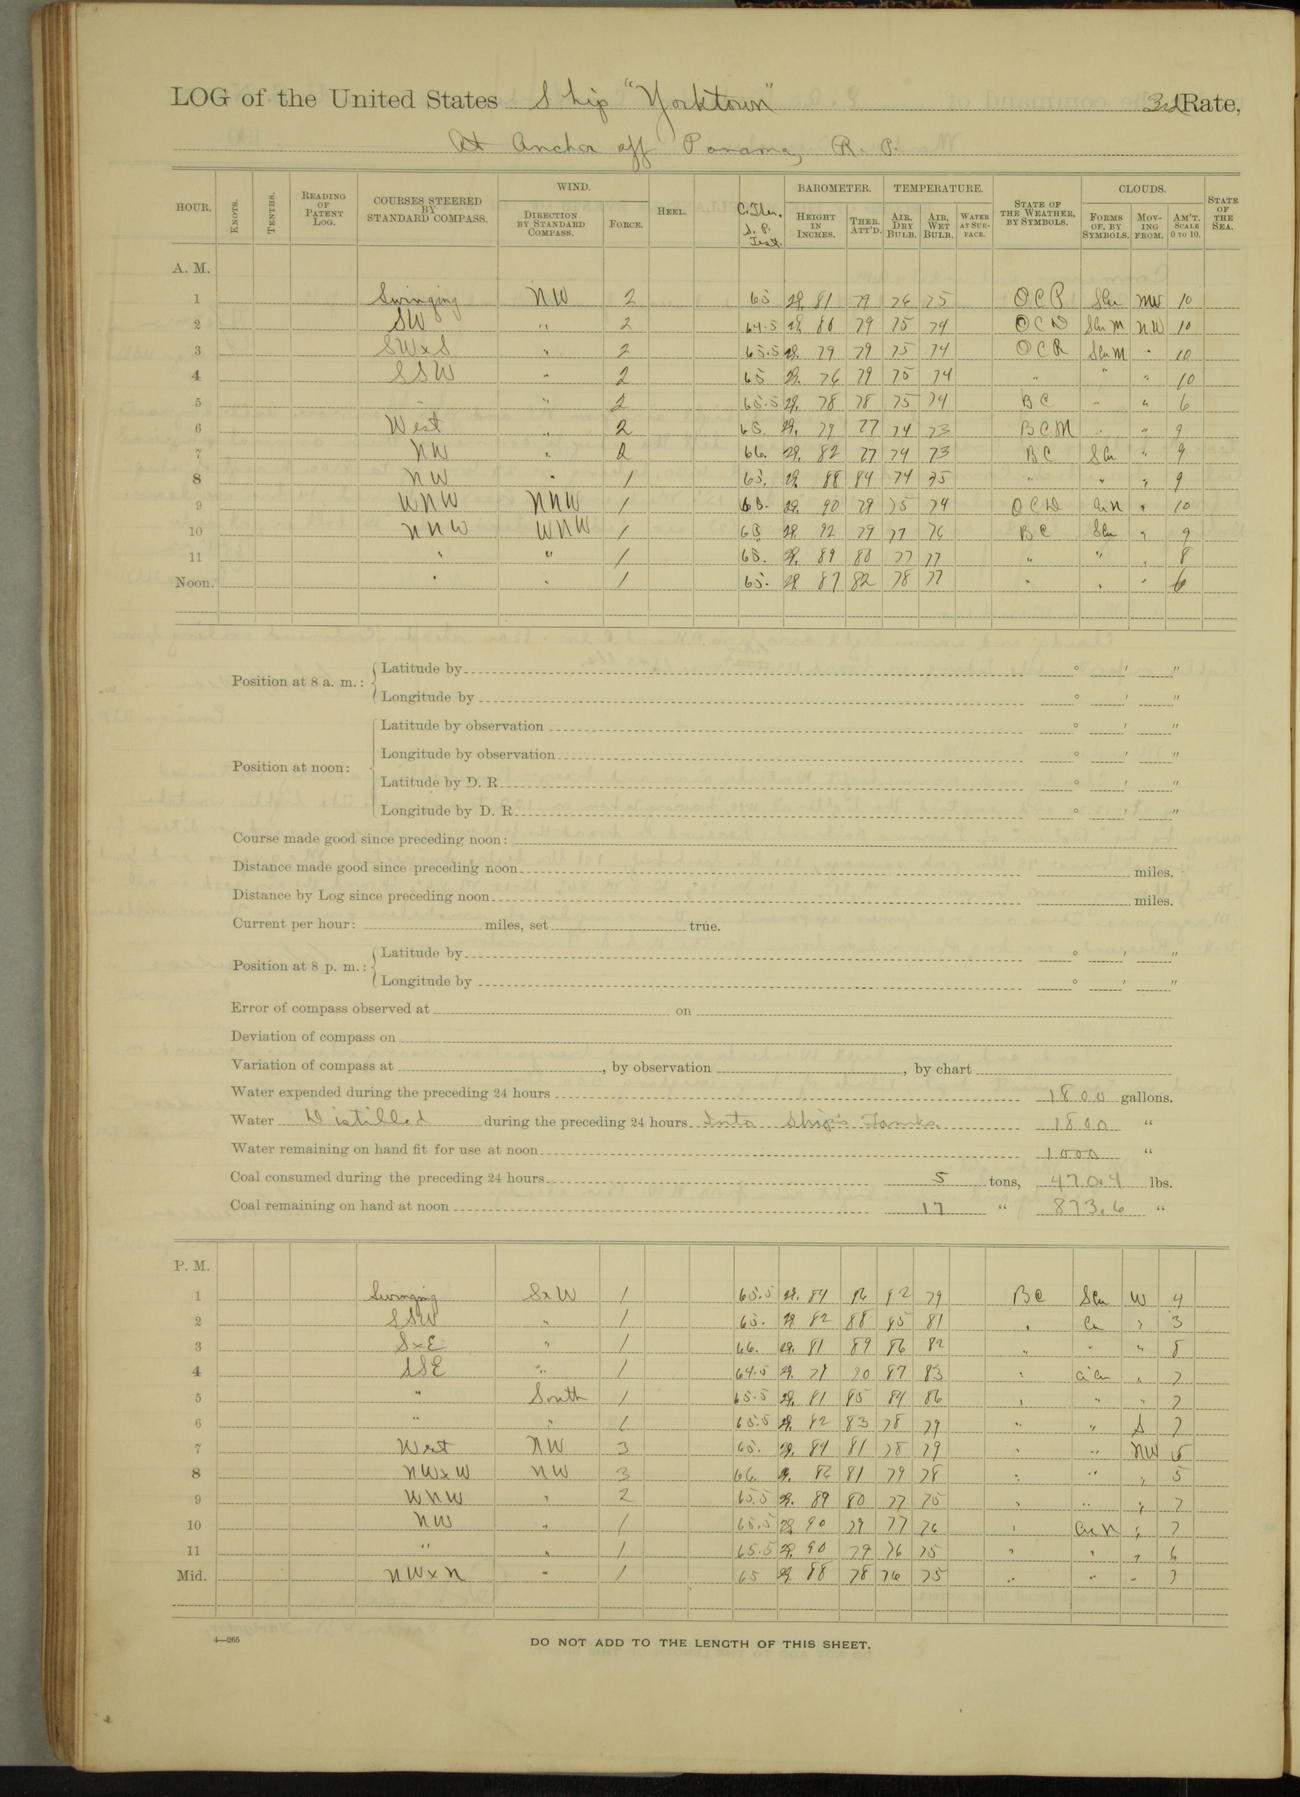 LOG of the United States Ship "Yorktown" 3rd Rate,
At Anchor off Panama, R. P.
HOUR. KNOTS. TENTHS. READING OF PATENT LOG. COURSES STEERED BY STANDARD COMPASS. WIND. DIRECTION BY STANDARD COMPASS. FORCE. HEEL. BAROMETER. HEIGHT IN INCHES. THER. ATT'D. TEMPERATURE. AIR, DRY BULB. AIR, WET BULB. WATER AT SURFACE. STATE OF THE WEATHER, BY SYMBOLS. CLOUDS. FORMS OF, BY SYMBOLS. MOVING FROM. AM'T. SCALE 0 TO 10. STATE OF THE SEA.
A. M.
1 Swinging NW 2 65 29. 81 79 76 75 OCP SCu NW 10
2 SW " 2 64.5 29. 80 79 75 74 OCD SCu N NW 10
3 SWxS " 2 65.5 29. 79 79 75 74 OCR SCu N " 10
4 SSW " 2 65 29. 76 79 75 74 " " " 10
5 " " 2 65.5 29. 78 78 75 74 BC " " 6
6 West " 2 65. 29. 79 77 74 73 BCM " " 9
7 NW " 2 66. 29. 82 77 74 73 BC SCu " 9
8 NW " 1 65. 29. 88 84 74 75 " " " 9
9 WNW NNW 1 65. 29. 90 79 75 74 OCD Cu N " 10
10 NNW WNW 1 65. 29. 92 79 77 76 BC SCu " 9
11 " " 1 65. 29. 89 80 77 77 " " " 8
Noon. " " 1 65. 29. 87 82 78 77 " " " 6
Position at 8 a. m.: Latitude by ° ' "
Longitude by ° ' "
Position at noon: Latitude by observation ° ' "
Longitude by observation ° ' "
Latitude by D. R. ° ' "
Longitude by D. R. ° ' "
Course made good since preceding noon:
Distance made good since preceding noon miles.
Distance by Log since preceding noon miles.
Current per hour: miles, set true.
Position at 8 p. m.: Latitude by ° ' "
Longitude by ° ' "
Error of compass observed at on
Deviation of compass on
Variation of compass at , by observation , by chart
Water expended during the preceding 24 hours 1800 gallons.
Water Distilled during the preceding 24 hours Into Ship's Tanks 1800 "
Water remaining on hand fit for use at noon 1000 "
Coal consumed during the preceding 24 hours 5 tons, 470.4 lbs.
Coal remaining on hand at noon 17 " 873.6 "
P. M.
1 Swinging SxW 1 65.5 29. 84 86 82 79 BC SCu W 4
2 SSW " 1 65. 29. 82 88 85 81 " Cu " 3
3 SxE " 1 66. 29. 81 89 86 82 " " " 8
4 SSE " 1 64.5 29. 79 90 87 83 " Ci Cu " 7
5 " South 1 65.5 29. 81 85 84 86 " " " 7
6 " " 1 65.5 29. 82 83 78 79 " " S 7
7 West NW 3 65. 29. 84 81 78 79 " " NW 5
8 NWxW NW 3 66. 29. 86 81 79 78 " " " 5
9 WNW " 2 65.5 29. 89 80 77 75 " " " 7
10 NW " 1 65.5 29. 90 79 77 76 " Cu N " 7
11 " " 1 65.5 29. 90 79 76 75 " " " 6
Mid. NWxN " 1 65 29. 88 78 76 75 " " " 7
4—265
DO NOT ADD TO THE LENGTH OF THIS SHEET.